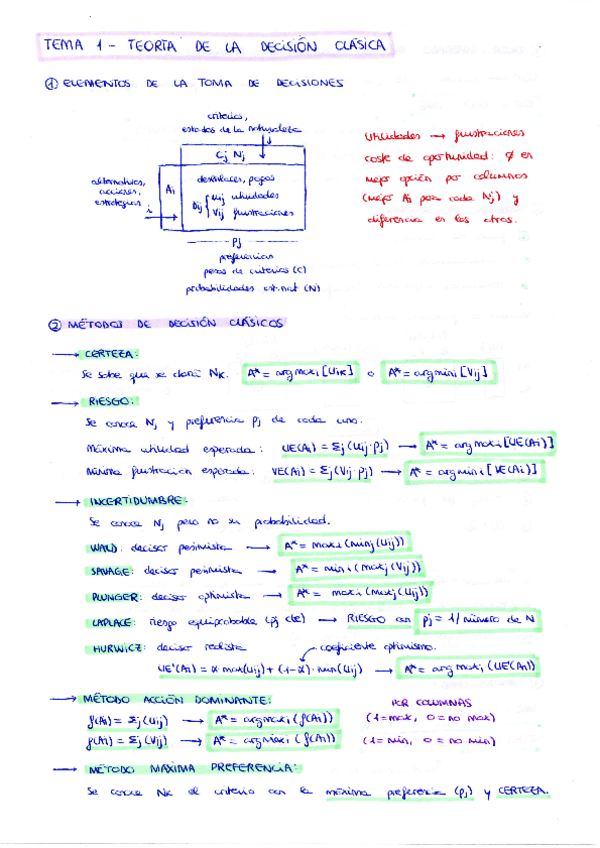 TEMA 1 - TEORÍA DE LA DECISIÓN CLÁSICA
① ELEMENTOS DE LA TOMA DE DECISIONES
criterios,
estados de la naturaleza
Cj Nj
alternativas,
acciones,
estrategias
i
Ai
desenlaces, pagos
Dij { Uij utilidades
Vij frustraciones
Pj
preferencias
pesos de criterios (C)
probabilidades est. nat (N)
Utilidades → frustraciones
coste de oportunidad: ∅ en
mejor opción por columnas
(mejor Ai para cada Nj) y
diferencia en los otros.
② MÉTODOS DE DECISIÓN CLÁSICOS
→ CERTEZA:
Se sabe que se dará Nk. A* = arg maxi [Uik] o A* = arg mini [Vij]
→ RIESGO:
Se conoce Nj y preferencia Pj de cada uno.
Máxima utilidad esperada: UE(Ai) = Σj (Uij·Pj) → A* = arg maxi [UE(Ai)]
Mínima frustración esperada: VE(Ai) = Σj (Vij·Pj) → A* = arg mini [VE(Ai)]
→ INCERTIDUMBRE:
Se conoce Nj pero no su probabilidad.
WALD: decisor pesimista → A* = maxi (minj (Uij))
SAVAGE: decisor pesimista → A* = mini (maxj (Vij))
PLUNGER: decisor optimista → A* = maxi (maxj (Uij))
LAPLACE: riesgo equiprobable (Pj cte) → RIESGO con Pj = 1/número de N
HURWICZ: decisor realista coeficiente optimismo.
UE'(Ai) = α max(Uij) + (1-α)·min(Uij) → A* = arg maxi (UE'(Ai))
→ MÉTODO ACCIÓN DOMINANTE: POR COLUMNAS
f(Ai) = Σj (Uij) → A* = arg maxi (f(Ai)) (1 = max, 0 = no max)
f(Ai) = Σj (Vij) → A* = arg maxi (f(Ai)) (1 = min, 0 = no min)
→ MÉTODO MÁXIMA PREFERENCIA:
Se conoce Nk el criterio con la máxima preferencia (Pj) y CERTEZA.